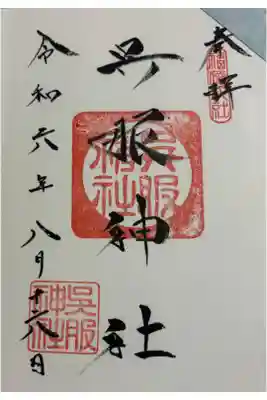 奉拝
呉服神社
令和六年八月十六日
呉服
神社
呉服
神社